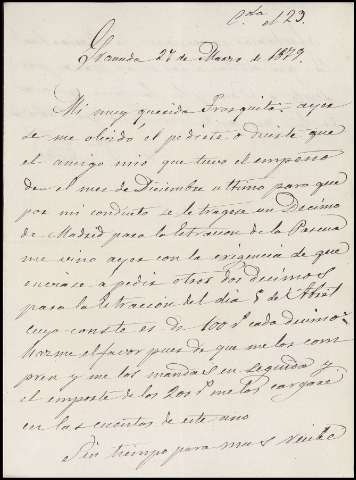 C.da el 29.
Granada 27 de Marzo de 1879.
Mi muy querida Frasquita: ayer
se me olvidó el pedirte o decirte que
el amigo mio que tuvo el empeño
de el mes de Diciembre ultimo para que
por mi conducto se le tragese un Decimo
de Madrid para la letracion de la Pascua
me vino ayer con la exigencia de que
enviase a pedir otros dos decimos
para la letracion del dia 5 de Abril
cuyo conste es de 100 r.s cada decimo
hazme el favor pues de que me los com
pren y me los mandas en seguida y
el importe de los 200 r.s me los cargare
en las cuentas de este uno
Sin tiempo para mas recibe